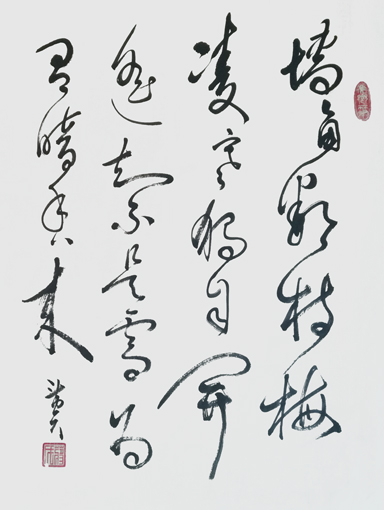 墙角数枝梅
凌寒独自开
遥知不是雪为
有暗香来